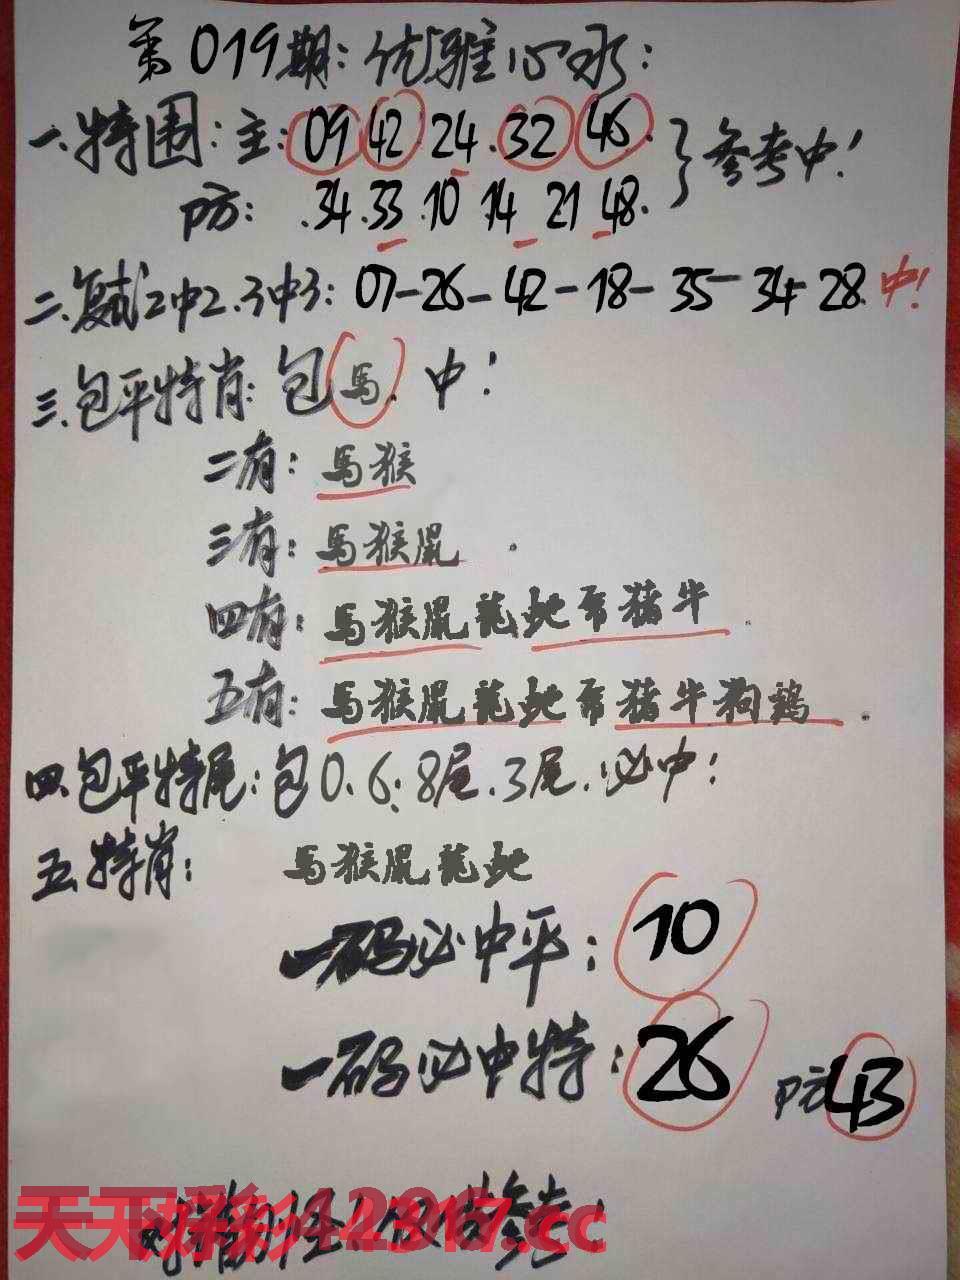 第019期:优雅心水:
一.特围:主:09 42 24.32 46.}参考中!
防:.34.33.10 14 21 48.
二.复式2中2.3中3:07-26-42-18-35-34-28.中!
三.包平特肖:包馬.中!
二有:馬猴
三有:馬猴鼠.
四有:馬猴鼠龍虵 猪牛.
五有:馬猴鼠龍虵 猪牛狗鸡.
四.包平特尾:包0.6.8尾.3尾.必中!
五.特肖:馬猴鼠龍虵
一码必中平:10
一码必中特:26 防43